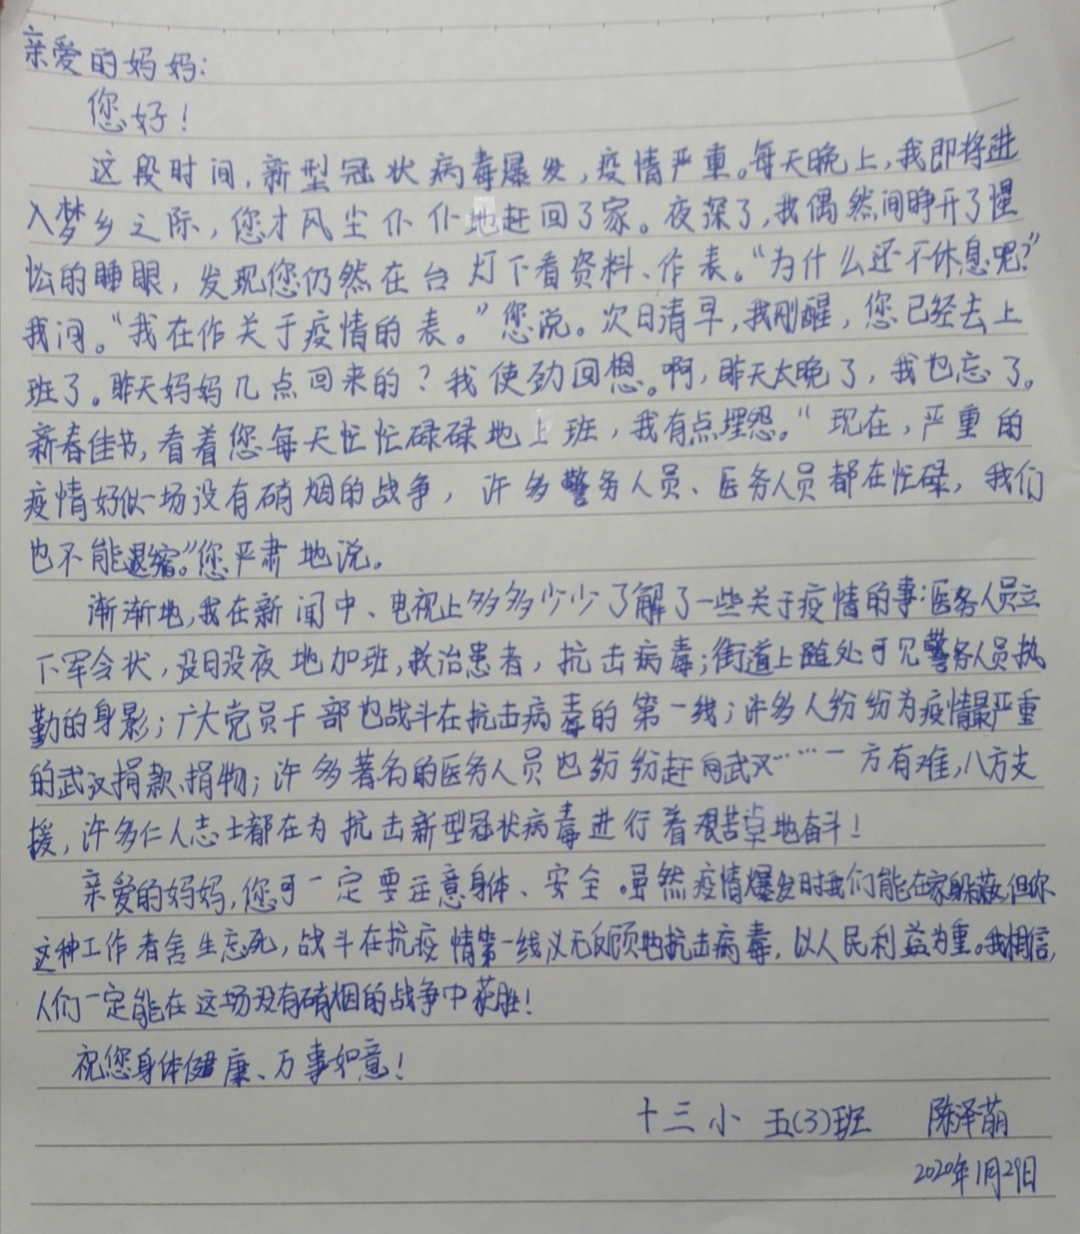 亲爱的妈妈：
您好！
这段时间，新型冠状病毒爆发，疫情严重。每天晚上，我即将进
入梦乡之际，您才风尘仆仆地赶回了家。夜深了，我偶然间睁开了惺
忪的睡眼，发现您仍然在台灯下看资料、作表。“为什么还不休息呢？”
我问。“我在作关于疫情的表。”您说。次日清早，我刚醒，您已经去上
班了。昨天妈妈几点回来的？我使劲回想。啊，昨天太晚了，我也忘了。
新春佳节，看着您每天忙忙碌碌地上班，我有点埋怨。“现在，严重的
疫情好似一场没有硝烟的战争，许多警务人员、医务人员都在忙碌，我们
也不能退缩。”您严肃地说。
渐渐地，我在新闻中、电视上多多少少了解了一些关于疫情的事：医务人员立
下军令状，没日没夜地加班，救治患者，抗击病毒；街道上随处可见警务人员执
勤的身影；广大党员干部也战斗在抗击病毒的第一线；许多人纷纷为疫情最严重
的武汉捐款、捐物；许多著名的医务人员也纷纷赶向武汉……一方有难，八方支
援，许多仁人志士都在为抗击新型冠状病毒进行着艰苦卓地奋斗！
亲爱的妈妈，您可一定要注意身体、安全。虽然疫情爆发时我们能在家躲藏，但你
这种工作者舍生忘死，战斗在抗疫情第一线义无反顾地抗击病毒，以人民利益为重。我相信，
人们一定能在这场没有硝烟的战争中获胜！
祝您身体健康、万事如意！
十三小 五(3)班 陈泽萌
2020年1月29日